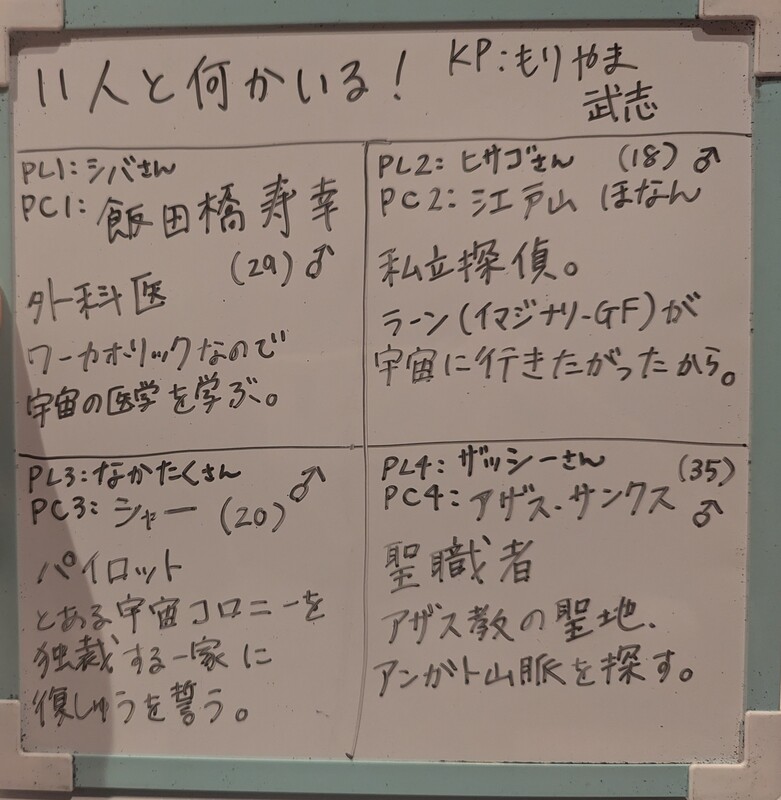 11人と何かいる!
KP:もりやま
武志
PL1:シバさん
PC1:飯田橋寿幸
(29)♂
外科医
ワーカホリックなので
宇宙の医学を学ぶ。
PL2:ヒサゴさん (18)♂
PC2:江戸山 ほなん
私立探偵。
ラーン(イマジナリーGF)が
宇宙に行きたがったから。
PL3:なかたくさん ♂
PC3:シャー (20)
パイロット
とある宇宙コロニーを
独裁する一家に
復しゅうを誓う。
PL4:ザッシーさん (35)
PC4:アザス・サンクス ♂
聖職者
アザス教の聖地.
アンガト山脈を探す。